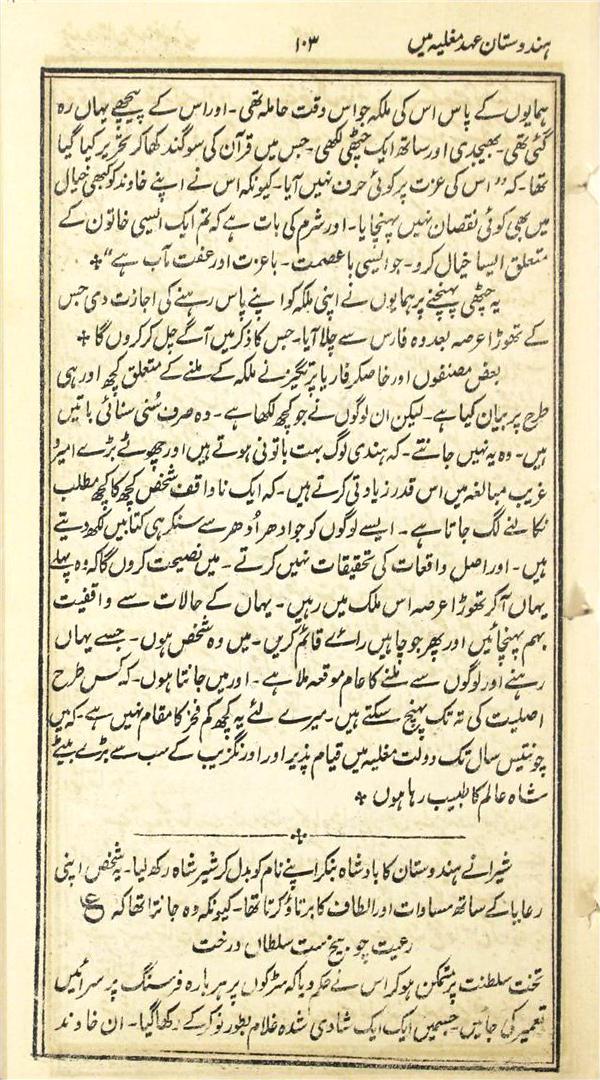 ہندوستان عہد مغلیہ میں
۱۰۳
ہمایوں کے پاس اس کی ملکہ جو اس وقت حاملہ تھی۔ اور اس کے پیچھے یہاں رہ
گئی تھی۔ بھیجدی اور ساتھ ایک چٹھی لکھی۔ جس میں قرآن کی سوگند کھا کر تحریر کیا گیا
تھا۔ کہ "اس کی عزت پر کوئی حرف نہیں آیا۔ کیونکہ اس نے اپنے خاوند کو کبھی خیال
میں بھی کوئی نقصان نہیں پہنچایا۔ اور شرم کی بات ہے کہ تم ایک ایسی خاتون کے
متعلق ایسا خیال کرو۔ جو ایسی با عصمت۔ باعزت اور عفت مآب ہے"
یہ چٹھی پہنچنے پر ہمایوں نے اپنی ملکہ کو اپنے پاس رہنے کی اجازت دی جس
کے تھوڑا عرصہ بعد وہ فارس سے چلا آیا۔ جس کا ذکر میں آگے چل کر کروں گا
بعض مصنفوں اور خاصکر فاریا پرتگیز نے ملکہ کے ملنے کے متعلق کچھ اور ہی
طرح پر بیان کیا ہے۔ لیکن ان لوگوں نے جو کچھ لکھا ہے۔ وہ صرف سُنی سنائی باتیں
ہیں۔ وہ یہ نہیں جانتے۔ کہ ہندی لوگ بہت باتونی ہوتے ہیں اور چھوٹے بڑے امیر و
غریب مبالغہ میں اس قدر زیادتی کرتے ہیں۔ کہ ایک ناواقف شخص کچھ کا کچھ مطلب
نکالنے لگ جاتا ہے۔ ایسے لوگوں کو جو ادھر اُدھر سے سنکر ہی کتابیں لکھ دیتے
ہیں۔ اور اصل واقعات کی تحقیقات نہیں کرتے۔ میں نصیحت کروں گا کہ وہ پہلے
یہاں آکر تھوڑا عرصہ اس ملک میں رہیں۔ یہاں کے حالات سے واقفیت
بہم پہنچائیں اور پھر جو چاہیں رائے قائم کریں۔ میں وہ شخص ہوں۔ جسے یہاں
رہنے اور لوگوں سے ملنے کا عام موقعہ ملا ہے۔ اور میں جانتا ہوں۔ کہ کس طرح
اصلیت کی تہ تک پہنچ سکتے ہیں۔ میرے لئے یہ کچھ کم فخر کا مقام نہیں ہے۔ کہ میں
چونتیس سال تک دولت مغلیہ میں قیام پذیر اور اورنگزیب کے سب سے بڑے بیٹے
شاہ عالم کا طبیب رہا ہوں
شیرا نے ہندوستان کا بادشاہ بنکر اپنے نام کو بدل کر شیر شاہ رکھ لیا۔ یہ شخص اپنی
رعایا کے ساتھ مساوات اور الطاف کا برتاؤ کرتا تھا۔ کیونکہ وہ جانتا تھا کہ ع
رعیت چو بیخ ست سلطاں درخت
تخت سلطنت پر متمکن ہو کر اس نے حکم دیا کہ سڑکوں پر ہر بارہ فرسنگ پر سرائیں
تعمیر کی جائیں۔ جسمیں ایک ایک شادی شدہ غلام بطور نوکر کے رکھا گیا۔ ان خاوند